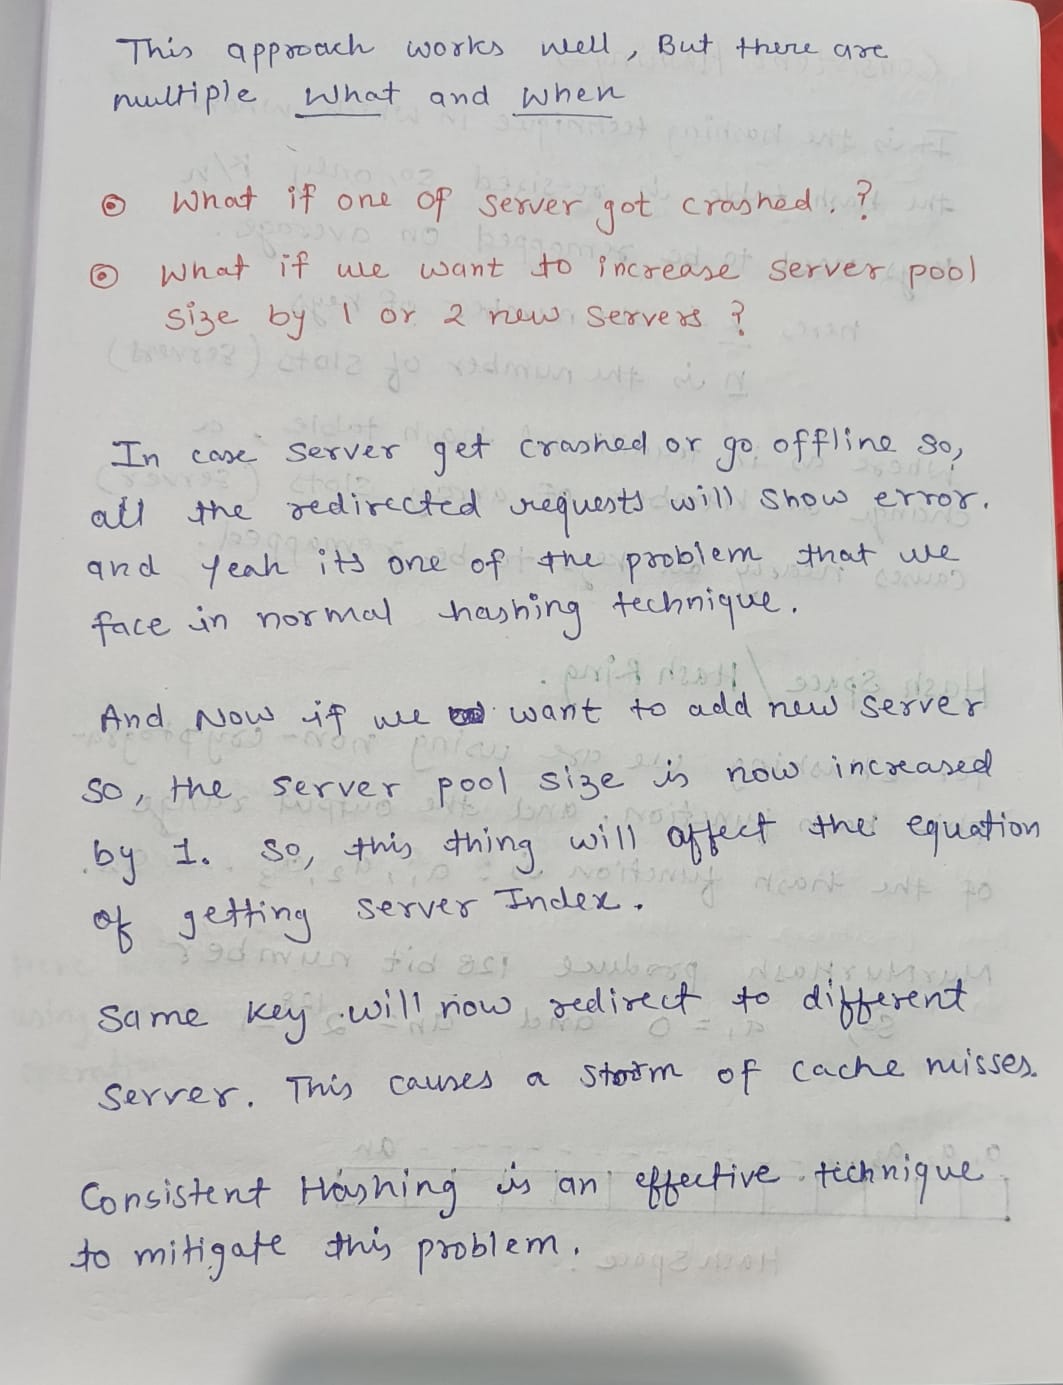 This approach works well, But there are
multiple What and When
What if one of server got crashed. ?
What if we want to increase server pool
size by 1 or 2 new servers ?
In case server get crashed or go offline so,
all the redirected requests will show error.
and yeah its one of the problem that we
face in normal hashing technique.
And Now if we want to add new server
so, the server pool size is now increased
by 1. so, this thing will affect the equation
of getting server Index.
Same key will now redirect to different
server. This causes a storm of cache misses.
Consistent Hashing is an effective technique
to mitigate this problem.